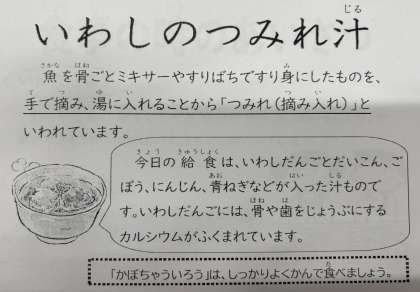 いわしのつみれ汁
魚を骨ごとミキサーやすりばちですり身にしたものを、
手で摘み、湯に入れることから「つみれ(摘み入れ)」と
いわれています。
今日の給食は、いわしだんごとだいこん、ご
ぼう、にんじん、青ねぎなどが入った汁もので
す。いわしだんごには、骨や歯をじょうぶにする
カルシウムがふくまれています。
「かぼちゃういろう」は、しっかりよくかんで食べましょう。